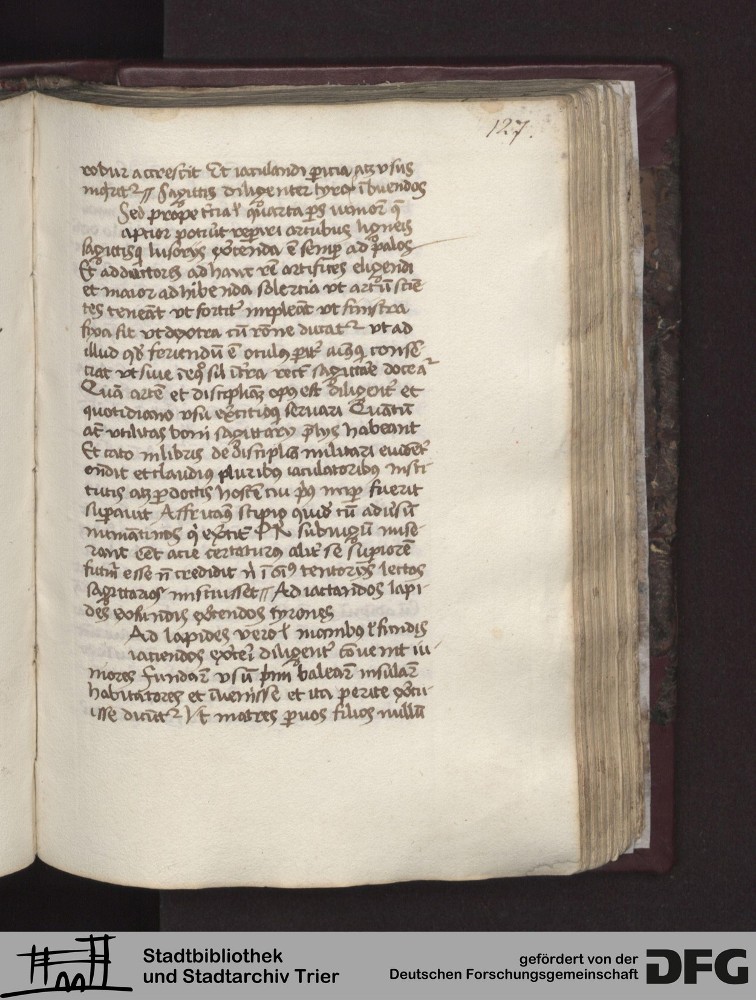 127.
robur accrescit Et iaculandi peritia atque usus
Sagittis diligenter tyrones imbuendos
Sed prope tercia vel quarta pars iuniorum que
aptior potuerit reperiri arcubus ligneis
sagittisque lusoriis exercenda est semper ad palos
Et ad doctores ad hanc rem artifices eligendi
et maior adhibenda solertia ut arcum scien
tes teneant ut fortiter impleant ut sinistra
fixa sit ut dextra cum racione ducatur ut ad
illud quod feriendum est oculus pariter animusque consen
ciat ut sive in equo sive in terra recte sagittare docea
Quam artem et disciplinam opus est diligenter et
quotidiano usu exercitioque servari Quantum
autem utilitas boni sagittarii habeant
Et cato in libris de disciplina militari evidenter
ostendit et claudius pluribus iaculatoribus insti
tutis atque perdoctis hostem cui prius impar fuerit
superavit Affricanus scipio quidem cum adversum
numantinos qui exercitum P R sub iugum mise
rant Et acie certaturus aliter se superiorem
futurum esse non credidit nisi in omnibus centoriis lectos
sagittarios miscuisset Ad iactandos lapi
des ex fundis exercendos tyrones
Ad lapides vero vel manibus vel fundis
iaciendos exerceri diligenter convenit iu
niores Fundarum usum primi balearum insularum
habitatores et invenisse et ita perite exercu
isse dicuntur Ut matres parvos filios nullum
Stadtbibliothek
und Stadtarchiv Trier
gefördert von der
Deutschen Forschungsgemeinschaft
DFG